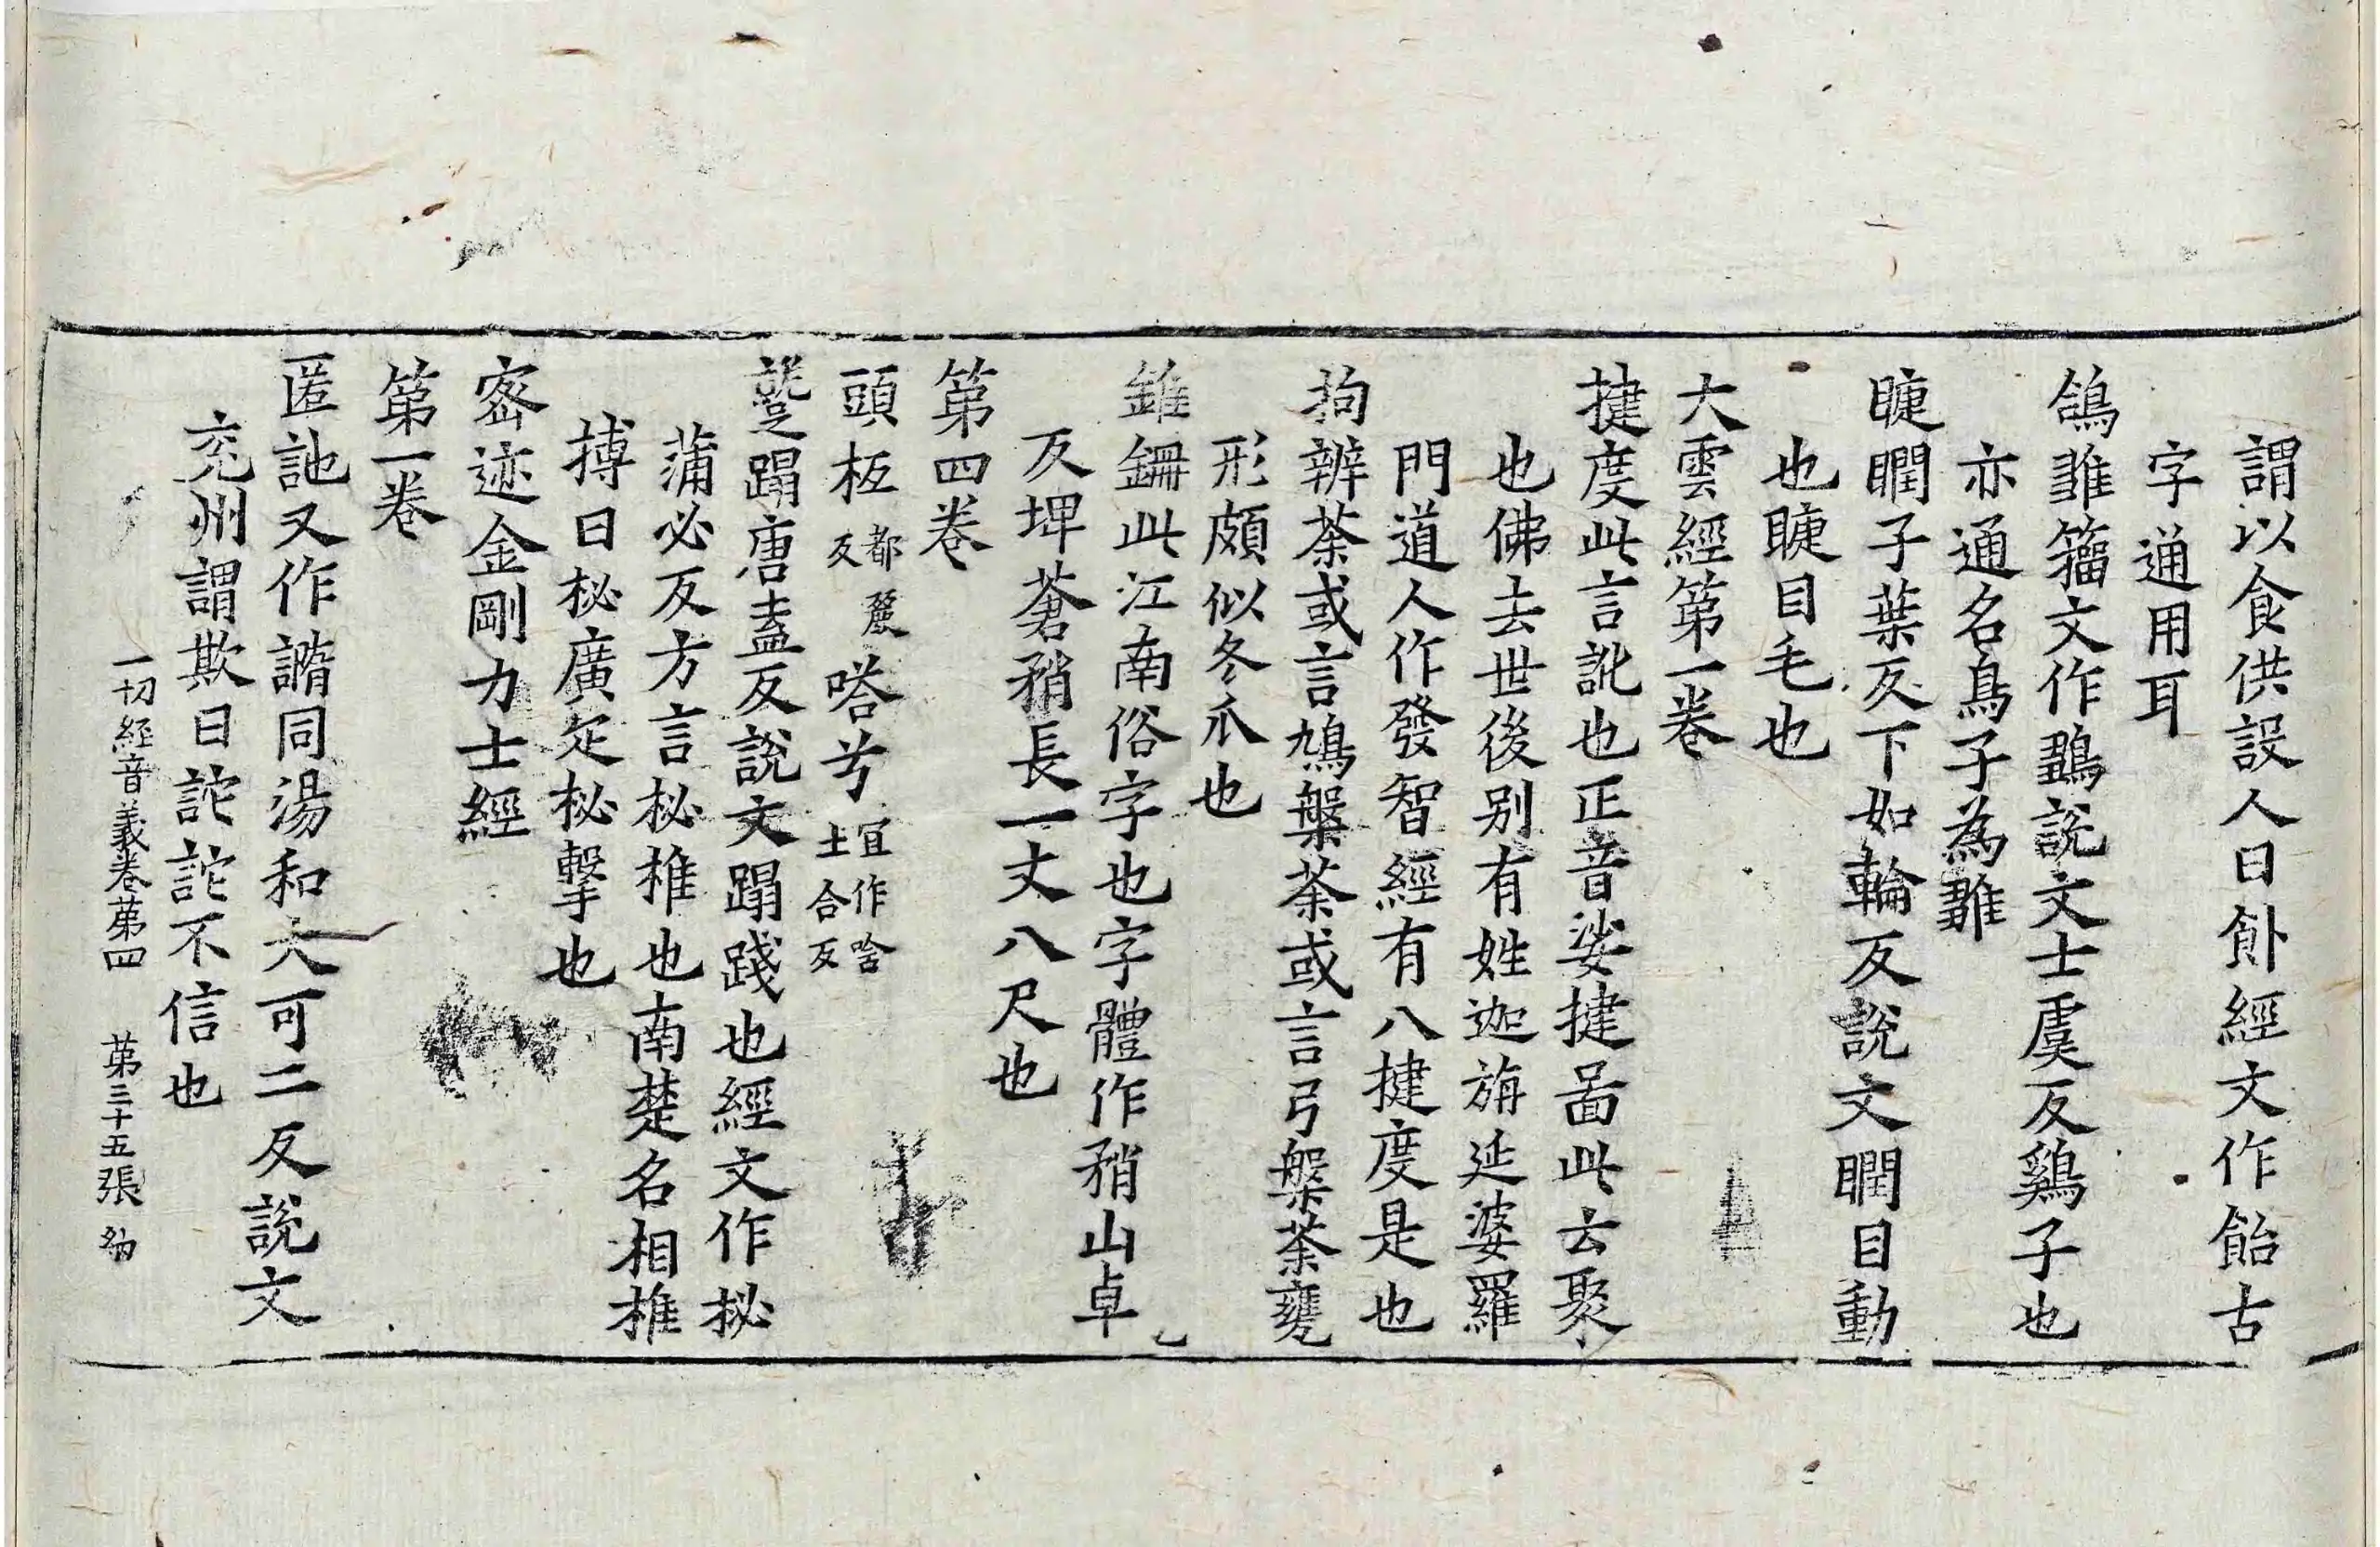 謂以食供設人曰飤經文作飴古
字通用耳
鴿雛籀文作鶵說文士虞反鷄子也
亦通名鳥子為雛
睫瞤子葉反下如輪反說文瞤目動
也睫目毛也
大雲經第一卷
揵度此言訛也正音娑揵啚此云聚
也佛去世後別有姓迦旃延婆羅
門道人作發智經有八揵度是也
拘辨荼或言鳩槃荼或言弓槃荼甕
形頗似冬瓜也
錐鏁此江南俗字也字體作矟山卓
反埤蒼矟長一丈八尺也
第四卷
頭柩都麗反嗒兮宜作嗒土合反
躄蹋唐盍反說文蹋踐也經文作柲
蒲必反方言柲椎也南楚名相椎
搏曰柲廣疋柲擊也
密迹金剛力士經
第一卷
匿訑又作譇同湯和大可二反說文
兖州謂欺曰詑詑不信也
一切經音義卷苐四 苐三十五張